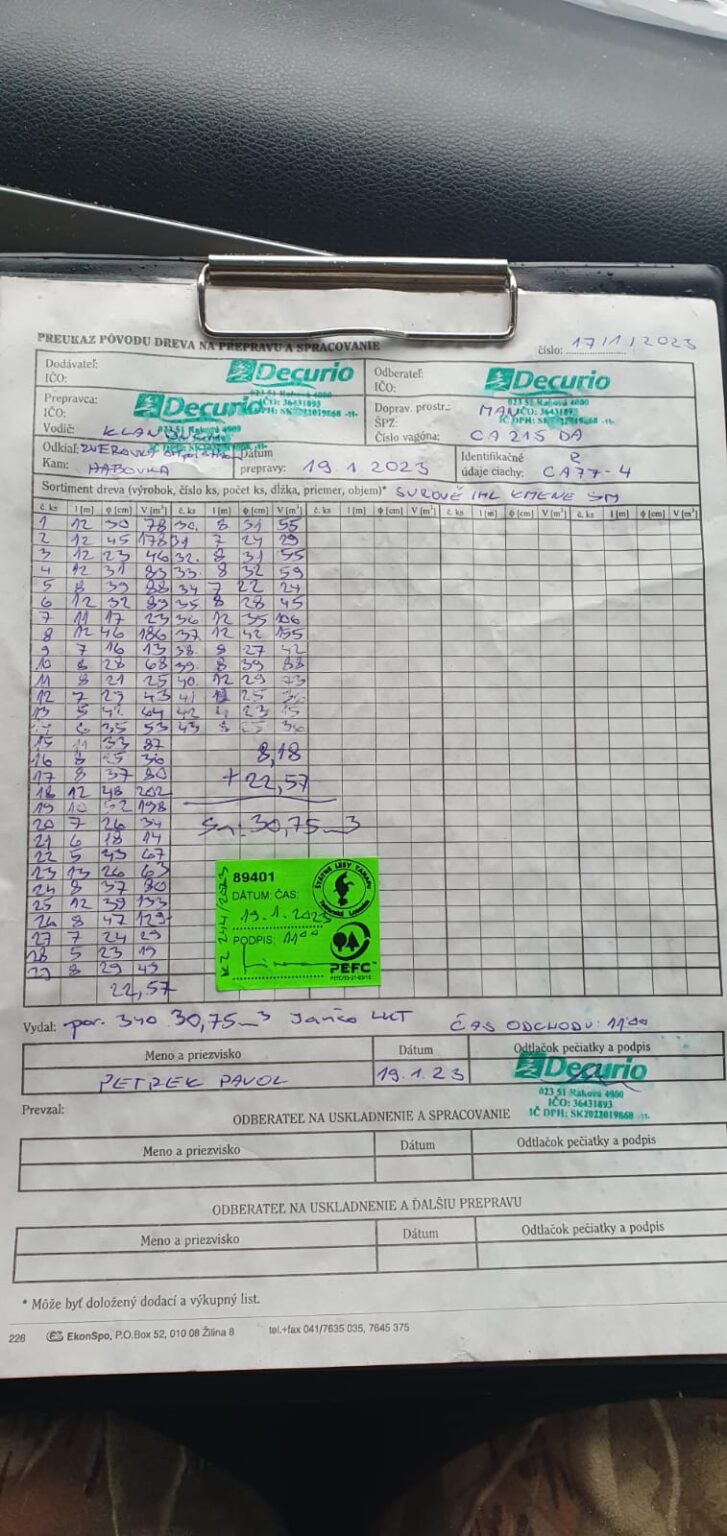 PREUKAZ PÔVODU DREVA NA PREPRAVU A SPRACOVANIE
číslo: 17/1/2023
Dodávateľ:
IČO:
Decurio
Odberateľ:
IČO:
Decurio
023 51 Raková 4900
IČO: 36431893
IČ DPH: SK2022019868 -11-
Prepravca:
IČO:
Vodič:
Decurio
023 51 Raková 4900
IČO: 36431893
IČ DPH: SK2022019868 -11-
Doprav. prostr.: MAN
ŠPZ:
Číslo vagóna: CA 215 DA
Odkiaľ: ZVEROVKA
Kam: HABOVKA
Dátum
prepravy: 19.1 2023
Identifikačné
údaje ciachy: CA77-4
Sortiment dreva (výrobok, číslo ks, počet ks, dĺžka, priemer, objem)* SUROVÉ IHL KMENE SM
č. ks l [m] ϕ [cm] V [m³] č. ks l [m] ϕ [cm] V [m³] č. ks l [m] ϕ [cm] V [m³] č. ks l [m] ϕ [cm] V [m³] č. ks l [m] ϕ [cm] V [m³]
1 12 30 78 30. 8 31 55
2 12 45 178 31 7 24 29
3 12 23 46 32. 8 31 55
4 12 31 83 33. 8 32 59
5 8 39 88 34 7 22 24
6 12 32 89 35 8 28 45
7 11 17 23 36 12 35 106
8 12 46 186 37 12 42 155
9 7 16 13 38. 8 27 42
10 8 28 68 39. 8 39 88
11 8 21 25 40. 12 29 73
12 7 29 43 41 25 36
13 5 42 64 42 23
6 35 53 43 8 25 36
15 11 33 87
16 8 25 36 8,18
17 8 37 80 + 22,57
18 12 48 202
19 10 52 198
20 7 26 34 30,75 m3
21 6 18 14
22 5 43 67
23 13 26 63
24 8 37 80
25 12 39 133
26 8 47 129
27 7 24 29
28 5 23 19
29 8 29 49
22,57
89401
DÁTUM: ČAS:
19.1.2023
PODPIS: 11⁰⁰
KZ 244/2023
ŠTÁTNE LESY TANAPU
PEFC
Vydal: por. 340 30,75 m3 Jančo LKT ČAS ODCHODU: 11⁰⁰
Meno a priezvisko Dátum Odtlačok pečiatky a podpis
PETREK PAVOL 19.1.23
Decurio
023 51 Raková 4900
IČO: 36431893
IČ DPH: SK2022019868 -11-
Prevzal:
ODBERATEĽ NA USKLADNENIE A SPRACOVANIE
Meno a priezvisko Dátum Odtlačok pečiatky a podpis
ODBERATEĽ NA USKLADNENIE A ĎALŠIU PREPRAVU
Meno a priezvisko Dátum Odtlačok pečiatky a podpis
* Môže byť doložený dodací a výkupný list.
228 EkonSpo, P.O.Box 52, 010 08 Žilina 8 tel.+fax 041/7635 035, 7645 375